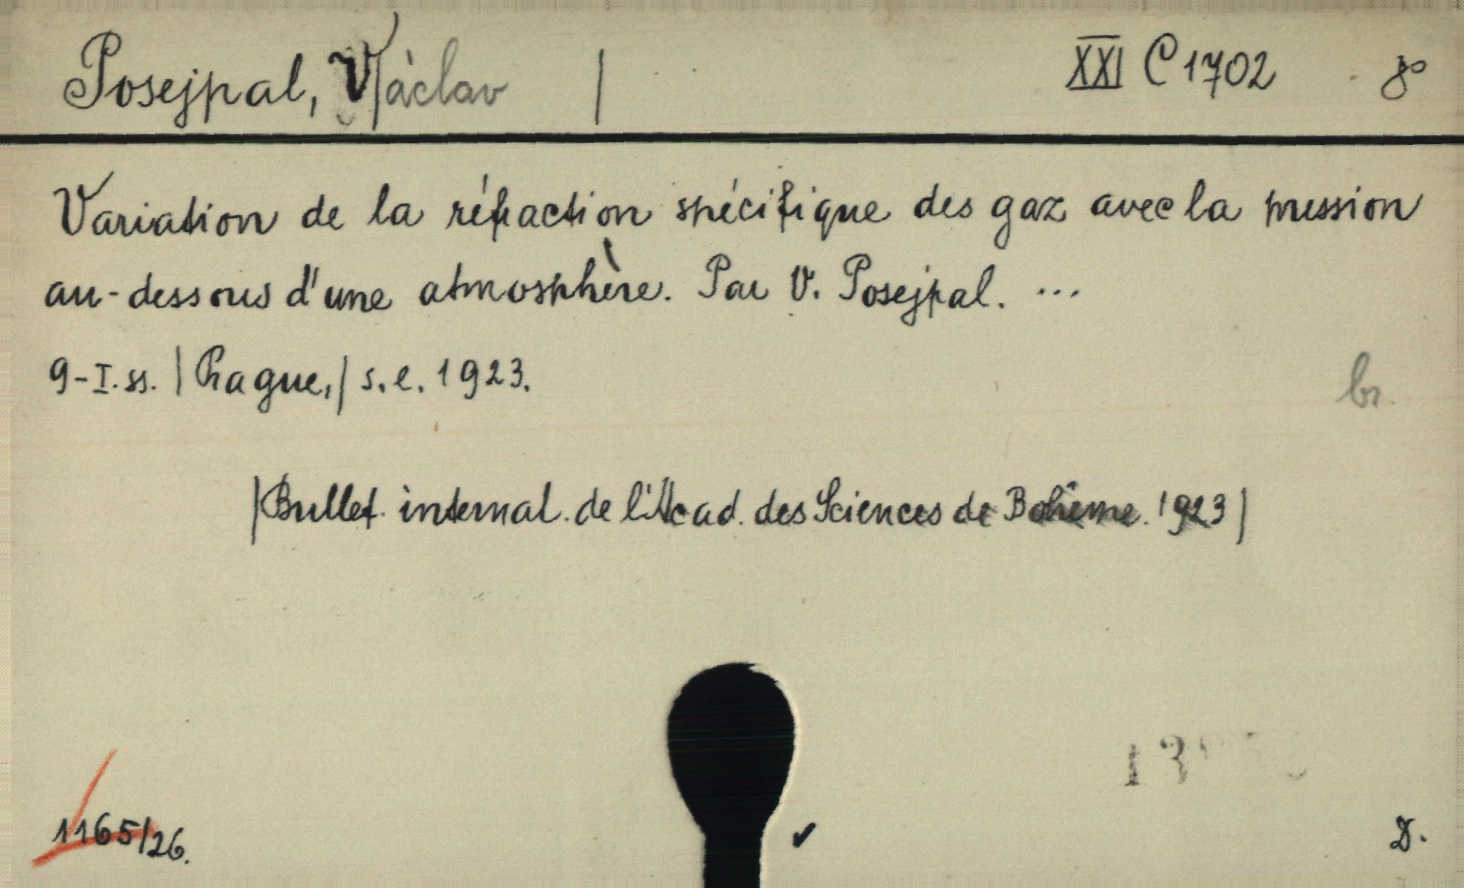 Posejpal, Vàclav | XXI C 1702 8°
Variation de la réfraction spécifique des gaz avec la pression
au-dessous d'une atmosphère. Par V. Posejpal. ...
9-I. ss. | Prague, | s. e. 1923.
br.
| Bullet. internal. de l'Acad. des Sciences de Bohême. 1923 |
1165/26.
D.